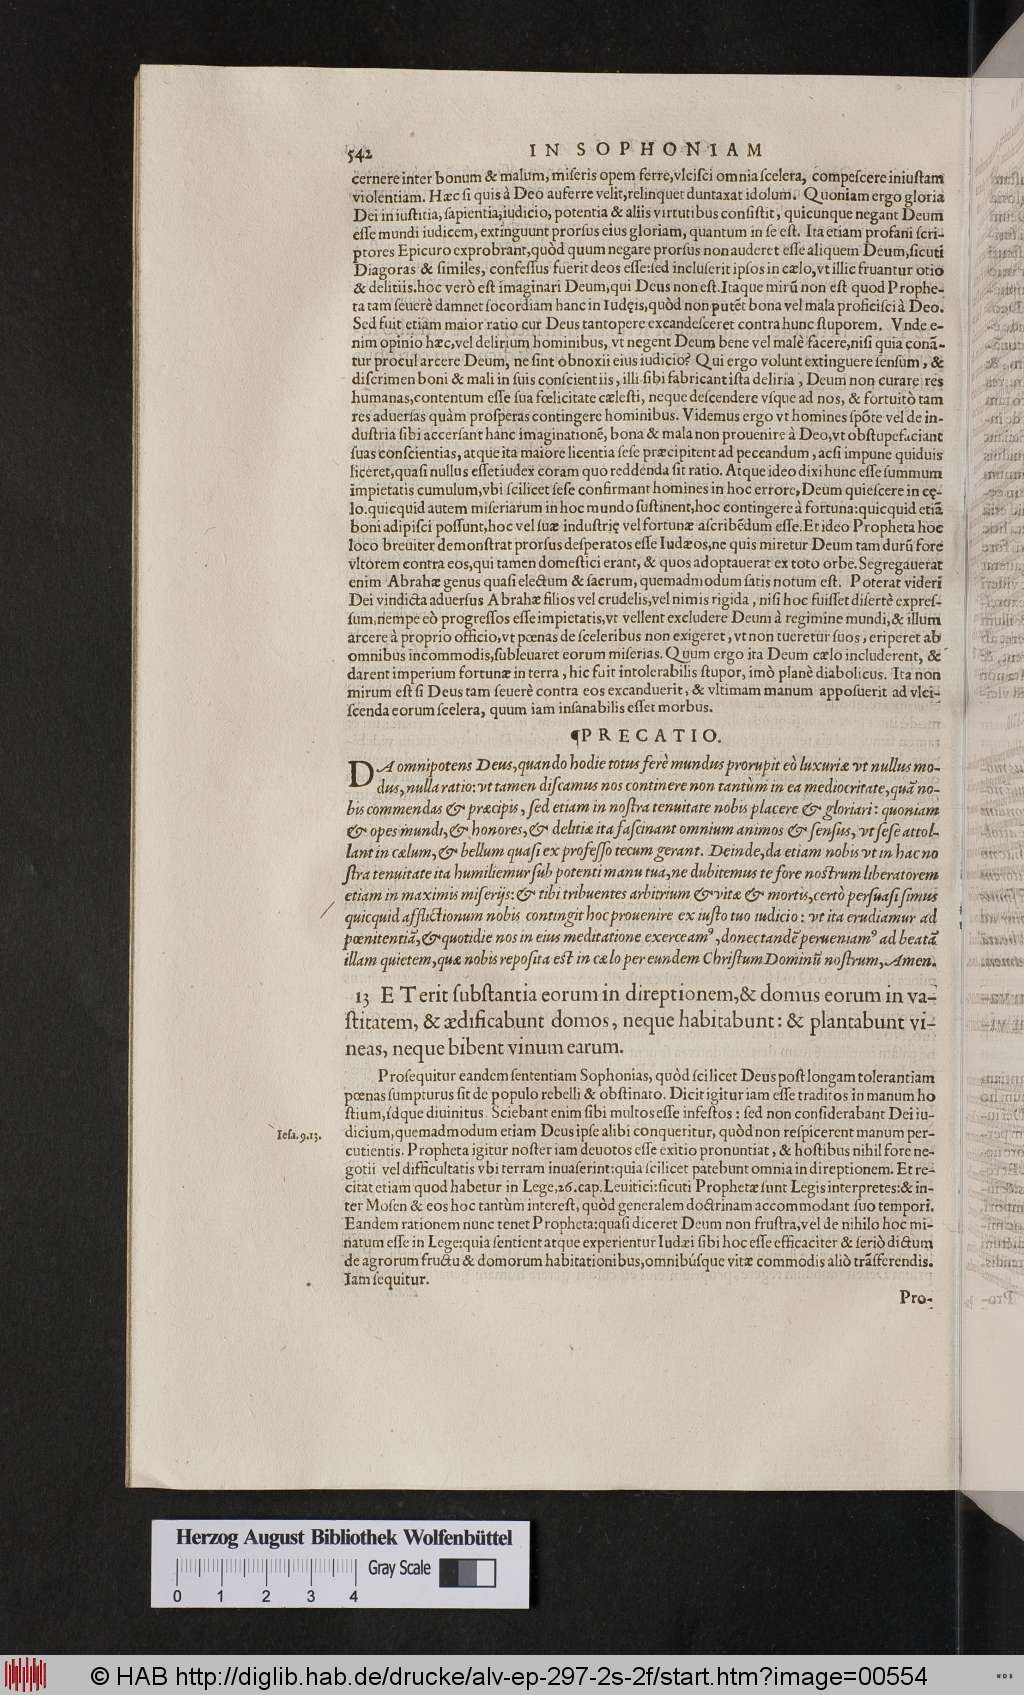 542 IN SOPHONIAM
cernere inter bonum & malum, miſeris opem ferre, vlciſci omnia ſcelera, compeſcere iniuſtam
violentiam. Hæc ſi quis à Deo auferre velit, relinquet duntaxat idolum. Quoniam ergo gloria
Dei in iuſtitia, ſapientia, iudicio, potentia & aliis virtutibus conſiſtit, quicunque negant Deum
eſſe mundi iudicem, extinguunt prorſus eius gloriam, quantum in ſe eſt. Ita etiam profani ſcri-
ptores Epicuro exprobrant, quòd quum negare prorſus non auderet eſſe aliquem Deum, ſicuti
Diagoras & ſimiles, confeſſus fuerit deos eſſe: ſed incluſerit ipſos in cælo, vt illic fruantur otio
& delitiis. hoc verò eſt imaginari Deum, qui Deus non eſt. Itaque mirũ non eſt quod Prophe-
ta tam ſeuerè damnet ſocordiam hanc in Iudęis, quòd non putẽt bona vel mala proficiſci à Deo.
Sed fuit etiam maior ratio cur Deus tantopere excandeſceret contra hunc ſtuporem. Vnde e-
nim opinio hæc, vel delirium hominibus, vt negent Deum bene vel malè facere, niſi quia conã-
tur procul arcere Deum, ne ſint obnoxii eius iudicio? Qui ergo volunt extinguere ſenſum, &
diſcrimen boni & mali in ſuis conſcientiis, illi ſibi fabricant iſta deliria, Deum non curare res
humanas, contentum eſſe ſua fœlicitate cæleſti, neque deſcendere vſque ad nos, & fortuitò tam
res aduerſas quàm proſperas contingere hominibus. Videmus ergo vt homines ſpõte vel de in-
duſtria ſibi accerſant hanc imaginationẽ, bona & mala non prouenire à Deo, vt obſtupefaciant
ſuas conſcientias, atque ita maiore licentia ſeſe præcipitent ad peccandum, acſi impune quiduis
liceret, quaſi nullus eſſet iudex coram quo reddenda ſit ratio. Atque ideo dixi hunc eſſe ſummum
impietatis cumulum, vbi ſcilicet ſeſe confirmant homines in hoc errore, Deum quieſcere in cę-
lo. quicquid autem miſeriarum in hoc mundo ſuſtinent, hoc contingere à fortuna: quicquid etiã
boni adipiſci poſſunt, hoc vel ſuæ induſtrię vel fortunæ aſcribẽdum eſſe. Et ideo Propheta hoc
loco breuiter demonſtrat prorſus deſperatos eſſe Iudæos, ne quis miretur Deum tam durũ fore
vltorem contra eos, qui tamen domeſtici erant, & quos adoptauerat ex toto orbe. Segregauerat
enim Abrahæ genus quaſi electum & ſacrum, quemadmodum ſatis notum eſt. Poterat videri
Dei vindicta aduerſus Abrahæ filios vel crudelis, vel nimis rigida, niſi hoc fuiſſet diſertè expreſ-
ſum, nempe eò progreſſos eſſe impietatis, vt vellent excludere Deum à regimine mundi, & illum
arcere à proprio officio, vt pœnas de ſceleribus non exigeret, vt non tueretur ſuos, eriperet ab
omnibus incommodis, ſubleuaret eorum miſerias. Quum ergo ita Deum cælo includerent, &
darent imperium fortunæ in terra, hic fuit intolerabilis ſtupor, imò planè diabolicus. Ita non
mirum eſt ſi Deus tam ſeuerè contra eos excanduerit, & vltimam manum appoſuerit ad vlci-
ſcenda eorum ſcelera, quum iam inſanabilis eſſet morbus.
¶PRECATIO.
DA omnipotens Deus, quando hodie totus ferè mundus prorupit eò luxuriæ vt nullus mo-
dus, nulla ratio: vt tamen diſcamus nos continere non tantùm in ea mediocritate, quã no-
bis commendas & præcipis, ſed etiam in noſtra tenuitate nobis placere & gloriari: quoniam
& opes mundi, & honores, & delitiæ ita faſcinant omnium animos & ſenſus, vt ſeſe attol-
lant in cælum, & bellum quaſi ex profeſſo tecum gerant. Deinde, da etiam nobis vt in hac no
ſtra tenuitate ita humiliemur ſub potenti manu tua, ne dubitemus te fore noſtrum liberatorem
etiam in maximis miſerijs: & tibi tribuentes arbitrium & vitæ & mortis, certò perſuaſi ſimus
quicquid afflictionum nobis contingit hoc prouenire ex iuſto tuo iudicio: vt ita erudiamur ad
pœnitentiã, & quotidie nos in eius meditatione exerceamꝰ, donec tandẽ perueniamꝰ ad beatã
illam quietem, quæ nobis repoſita eſt in cælo per eundem Chriſtum Dominũ noſtrum, Amen.
13 ET erit ſubſtantia eorum in direptionem, & domus eorum in va-
ſtitatem, & ædificabunt domos, neque habitabunt: & plantabunt vi-
neas, neque bibent vinum earum.
Proſequitur eandem ſententiam Sophonias, quòd ſcilicet Deus poſt longam tolerantiam
pœnas ſumpturus ſit de populo rebelli & obſtinato. Dicit igitur iam eſſe traditos in manum ho
ſtium, idque diuinitus. Sciebant enim ſibi multos eſſe infeſtos: ſed non conſiderabant Dei iu-
Ieſa. 9.13.
dicium, quemadmodum etiam Deus ipſe alibi conqueritur, quòd non reſpicerent manum per-
cutientis. Propheta igitur noſter iam deuotos eſſe exitio pronuntiat, & hoſtibus nihil fore ne-
gotii vel difficultatis vbi terram inuaſerint: quia ſcilicet patebunt omnia in direptionem. Et re-
citat etiam quod habetur in Lege, 26. cap. Leuitici: ſicuti Prophetæ ſunt Legis interpretes: & in-
ter Moſen & eos hoc tantùm intereſt, quòd generalem doctrinam accommodant ſuo tempori.
Eandem rationem nunc tenet Propheta: quaſi diceret Deum non fruſtra, vel de nihilo hoc mi-
natum eſſe in Lege: quia ſentient atque experientur Iudæi ſibi hoc eſſe efficaciter & ſeriò dictum
de agrorum fructu & domorum habitationibus, omnibúſque vitæ commodis aliò trãſferendis.
Iam ſequitur.
Pro-
Herzog August Bibliothek Wolfenbüttel
Gray Scale
0 1 2 3 4
© HAB http://diglib.hab.de/drucke/alv-ep-297-2s-2f/start.htm?image=00554